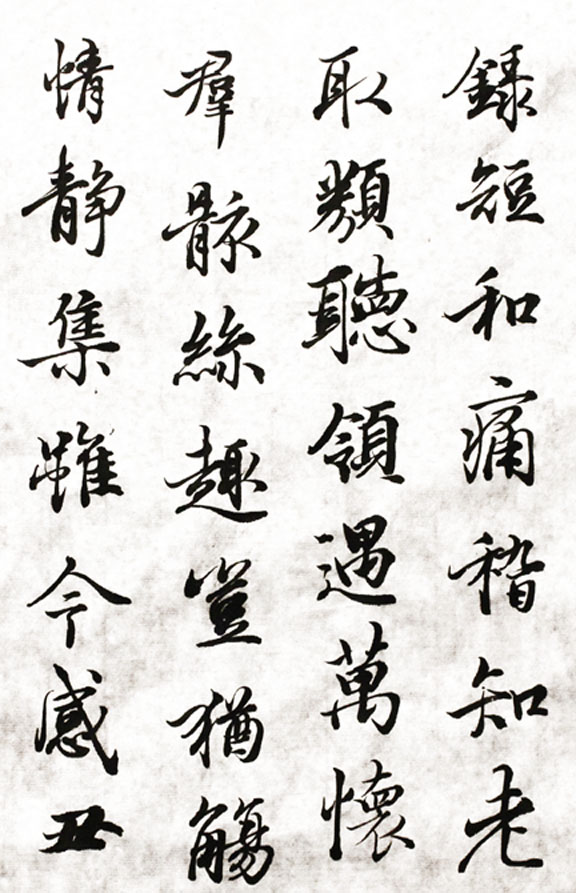 録短和痛稽知老
取類聽領遇萬懷
羣骸絲趣豈猶觴
情静集雖今感丑